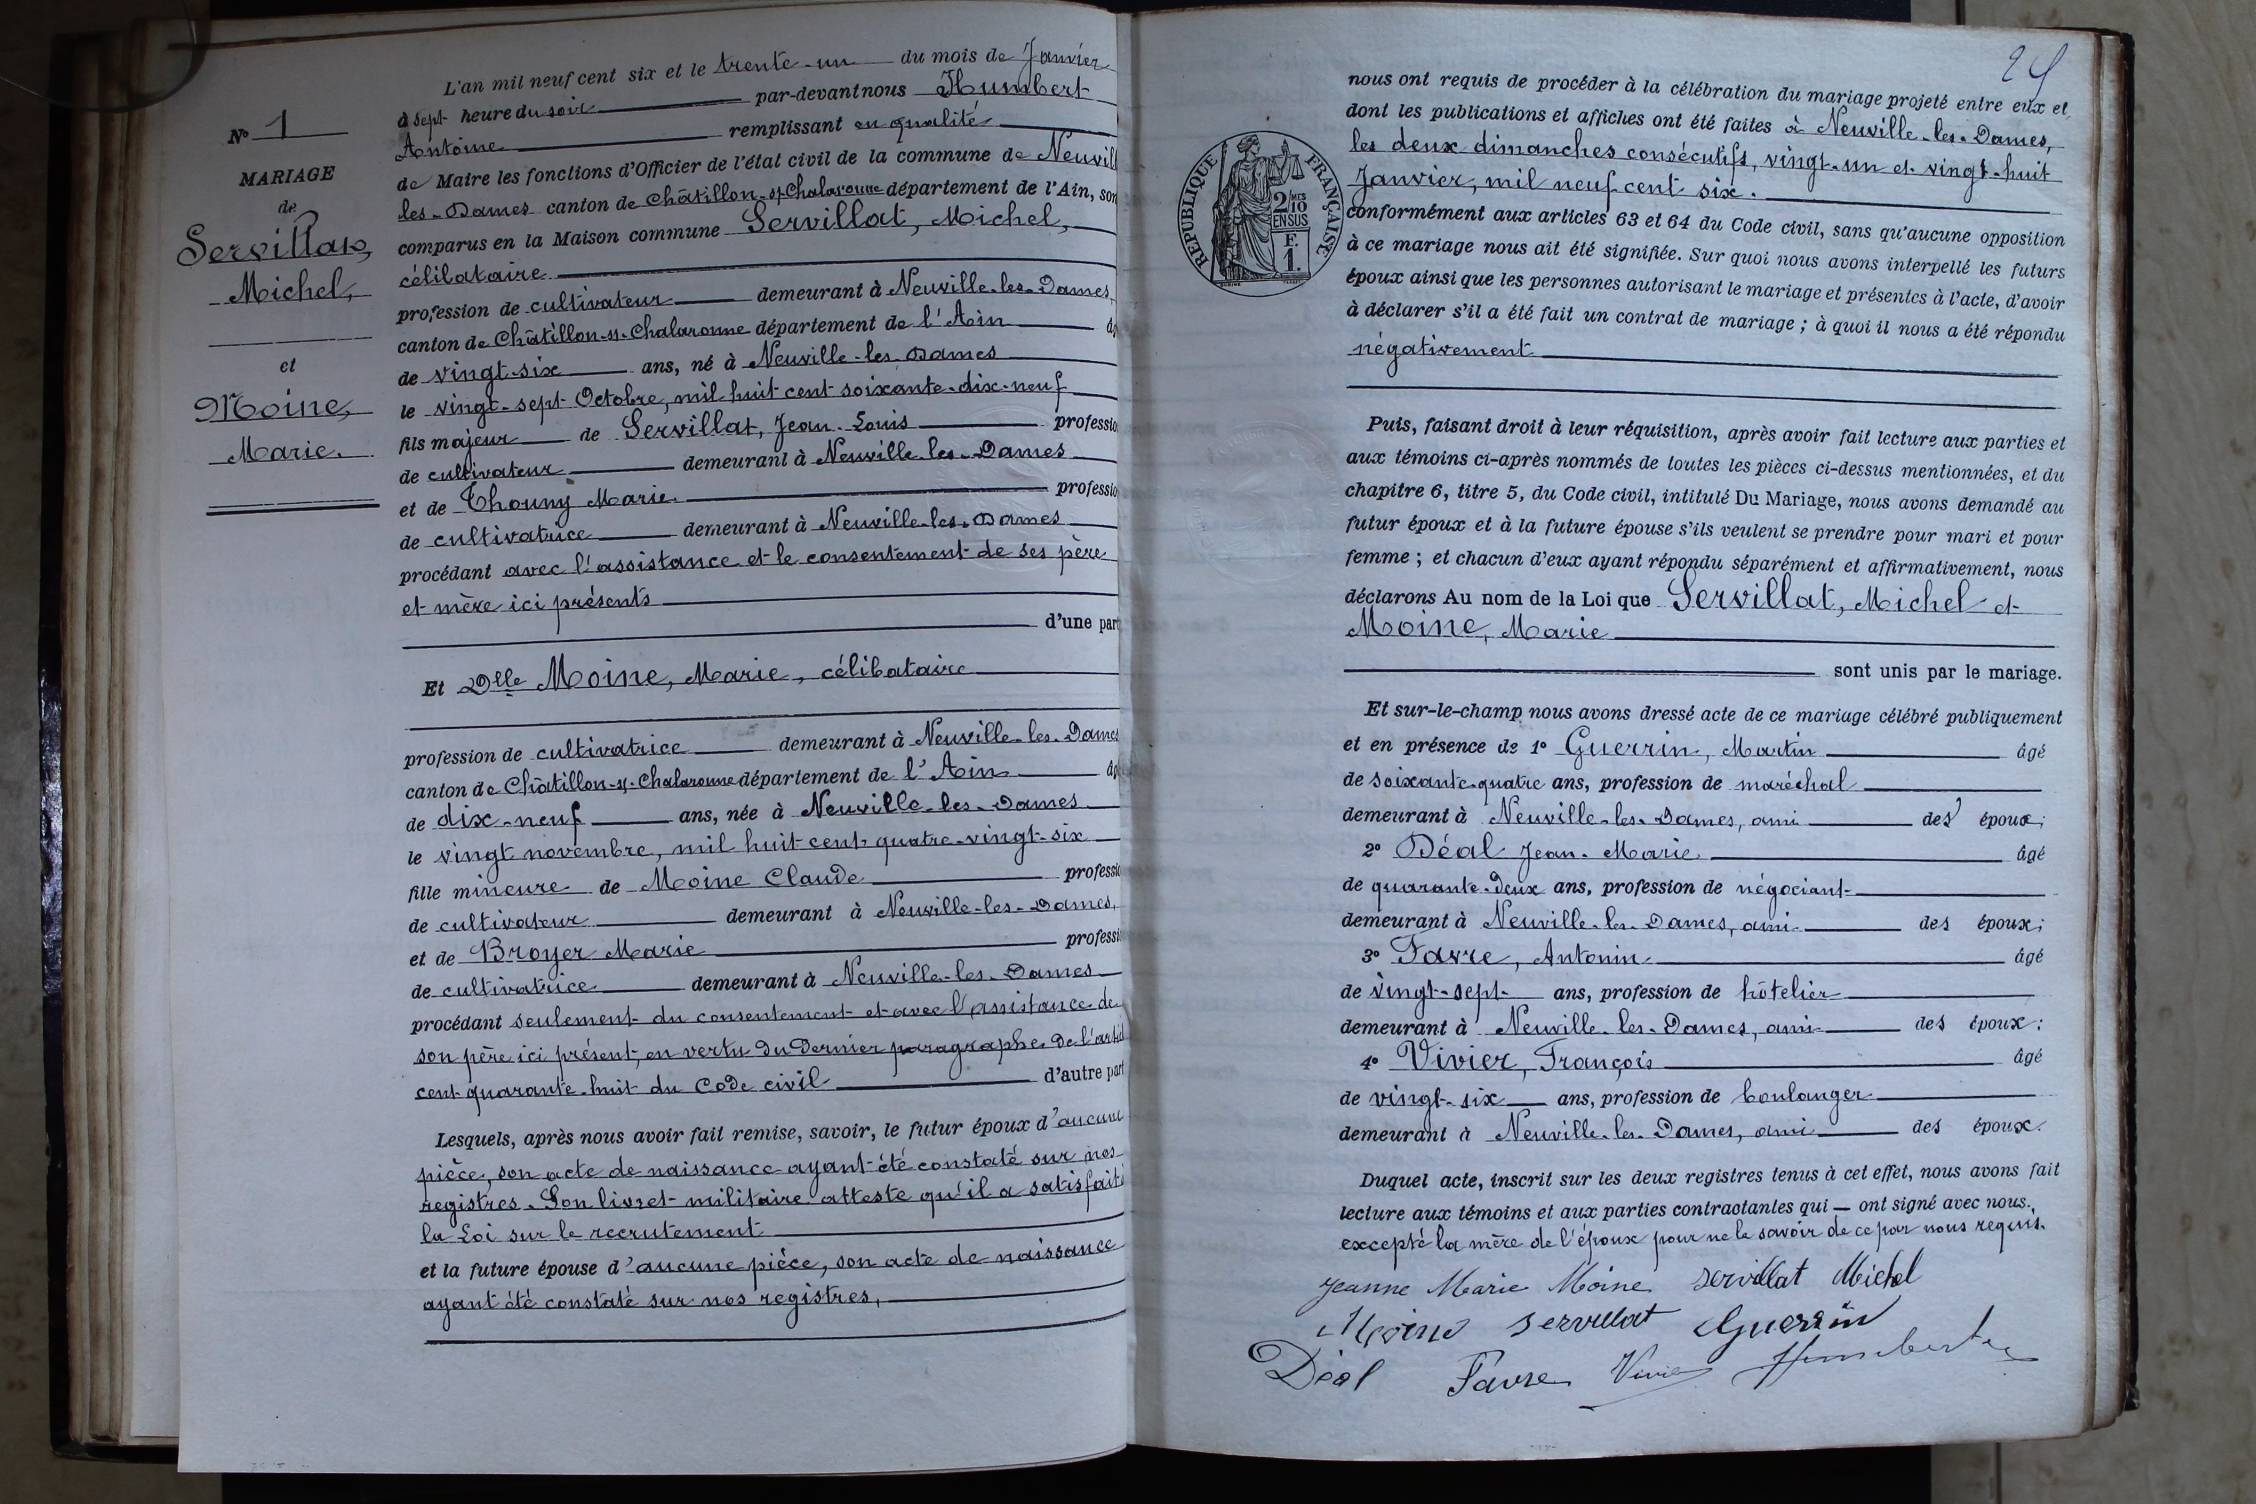 L'an mil neuf cent six et le trente-un du mois de Janvier
à sept heure du soir par-devant nous Humbert
Antoine remplissant en qualité
de Maire les fonctions d'Officier de l'état civil de la commune de Neuvill
les-Dames canton de Châtillon-s/-Chalaronne département de l'Ain, son
comparus en la Maison commune Servillat, Michel,
célibataire
profession de cultivateur demeurant à Neuville-les-Dames,
canton de Châtillon-s/-Chalaronne département de l'Ain âg
de vingt-six ans, né à Neuville-les-Dames
le vingt-sept Octobre, mil huit cent soixante-dix-neuf
fils majeur de Servillat, Jean-Louis professio
de cultivateur demeurant à Neuville-les-Dames
et de Thouny Marie professio
de cultivatrice demeurant à Neuville-les-Dames
procédant avec l'assistance et le consentement de ses père
et mère ici présents
d'une part
Et Dlle Moine, Marie, célibataire
profession de cultivatrice demeurant à Neuville-les-Dames
canton de Châtillon-s/-Chalaronne département de l'Ain âg
de dix-neuf ans, née à Neuville-les-Dames
le vingt novembre, mil huit cent quatre-vingt-six
fille mineure de Moine Claude professio
de cultivateur demeurant à Neuville-les-Dames,
et de Broyer Marie professi
de cultivatrice demeurant à Neuville-les-Dames
procédant seulement du consentement et avec l'assistance de
son père ici présent, en vertu du dernier paragraphe de l'articl
cent quarante-huit du Code civil d'autre part
Lesquels, après nous avoir fait remise, savoir, le futur époux d'aucune
pièce, son acte de naissance ayant été constaté sur nos
registres. Son livret militaire atteste qu'il a satisfait à
la Loi sur le recrutement
et la future épouse d'aucune pièce, son acte de naissance
ayant été constaté sur nos registres,
No 1
MARIAGE
de
Servillat,
Michel,
et
Moine,
Marie.
nous ont requis de procéder à la célébration du mariage projeté entre eux et
dont les publications et affiches ont été faites à Neuville-les-Dames,
les deux dimanches consécutifs, vingt-un et vingt-huit
Janvier, mil neuf cent six.
conformément aux articles 63 et 64 du Code civil, sans qu'aucune opposition
à ce mariage nous ait été signifiée. Sur quoi nous avons interpellé les futurs
époux ainsi que les personnes autorisant le mariage et présentes à l'acte, d'avoir
à déclarer s'il a été fait un contrat de mariage ; à quoi il nous a été répondu
négativement
Puis, faisant droit à leur réquisition, après avoir fait lecture aux parties et
aux témoins ci-après nommés de toutes les pièces ci-dessus mentionnées, et du
chapitre 6, titre 5, du Code civil, intitulé Du Mariage, nous avons demandé au
futur époux et à la future épouse s'ils veulent se prendre pour mari et pour
femme ; et chacun d'eux ayant répondu séparément et affirmativement, nous
déclarons Au nom de la Loi que Servillat, Michel et
Moine, Marie
sont unis par le mariage.
Et sur-le-champ nous avons dressé acte de ce mariage célébré publiquement
et en présence de 1º Guerrin, Martin âgé
de soixante-quatre ans, profession de maréchal
demeurant à Neuville-les-Dames, ami des époux;
2º Déal Jean-Marie âgé
de quarante-deux ans, profession de négociant
demeurant à Neuville-les-Dames, ami des époux;
3º Favre, Antonin âgé
de vingt-sept ans, profession de hôtelier
demeurant à Neuville-les-Dames, ami des époux;
4º Vivier, François âgé
de vingt-six ans, profession de boulanger
demeurant à Neuville-les-Dames, ami des époux.
Duquel acte, inscrit sur les deux registres tenus à cet effet, nous avons fait
lecture aux témoins et aux parties contractantes qui ont signé avec nous.,
excepté la mère de l'époux pour ne le savoir de ce par nous requis.
Jeanne Marie Moine Servillat Michel
Moine Servillat Guerrin
Déal Favre Vivier Humbert
RÉPUBLIQUE FRANÇAISE
2/10 MES
EN SUS
F.
1.